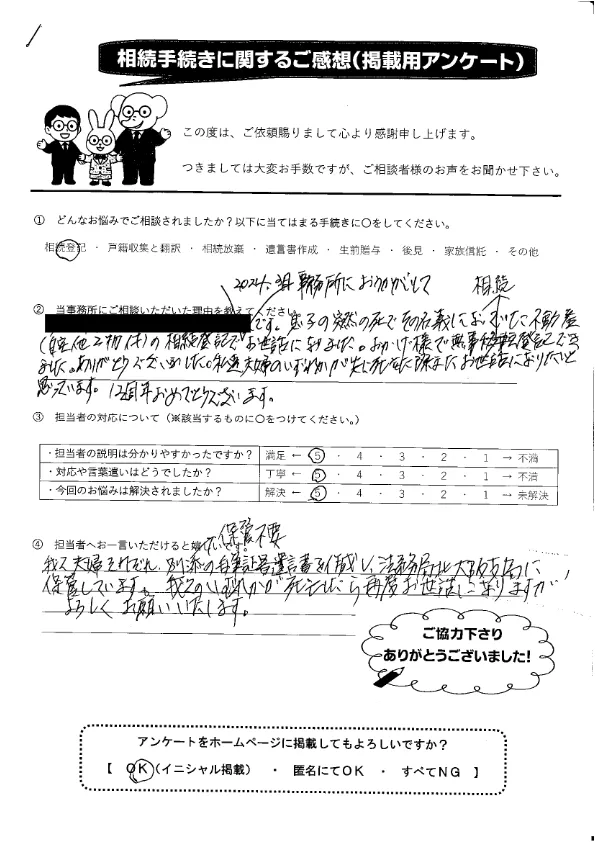 相続手続きに関するご感想(掲載用アンケート)
この度は、ご依頼賜りまして心より感謝申し上げます。
つきましては大変お手数ですが、ご相談者様のお声をお聞かせ下さい。
① どんなお悩みでご相談されましたか？以下に当てはまる手続きに〇をしてください。
相続登記 ・ 戸籍収集と翻訳 ・ 相続放棄 ・ 遺言書作成 ・ 生前贈与 ・ 後見 ・ 家族信託 ・ その他
2024. 事務所におうかがいして 相続
② 当事務所にご相談いただいた理由を教えてください。
です。息子の突然の死でその名義になっていた不動産
の相続登記でお世話になりました。おかげ様で無事登記でき
ました。ありがとうございました。私達夫婦のいずれかが先に死去した際またお世話になりたいと
思っています。12周年おめでとうございます。
③ 担当者の対応について（※該当するものに〇をつけてください。）
・担当者の説明は分かりやすかったですか？ 満足 ← 5 ・ 4 ・ 3 ・ 2 ・ 1 → 不満
・対応や言葉遣いはどうでしたか？ 丁寧 ← 5 ・ 4 ・ 3 ・ 2 ・ 1 → 不満
・今回のお悩みは解決されましたか？ 解決 ← 5 ・ 4 ・ 3 ・ 2 ・ 1 → 未解決
保管不要
④ 担当者へお一言いただけると嬉しいです。
我々夫婦それぞれ、別添の自筆証書遺言書を作成し、法務局
保管しています。我々のいずれかが死亡したら再度お世話になりますが、
よろしくお願いいたします。
ご協力下さり
ありがとうございました!
アンケートをホームページに掲載してもよろしいですか？
【 OK（イニシャル掲載） ・ 匿名にてOK ・ すべてNG 】